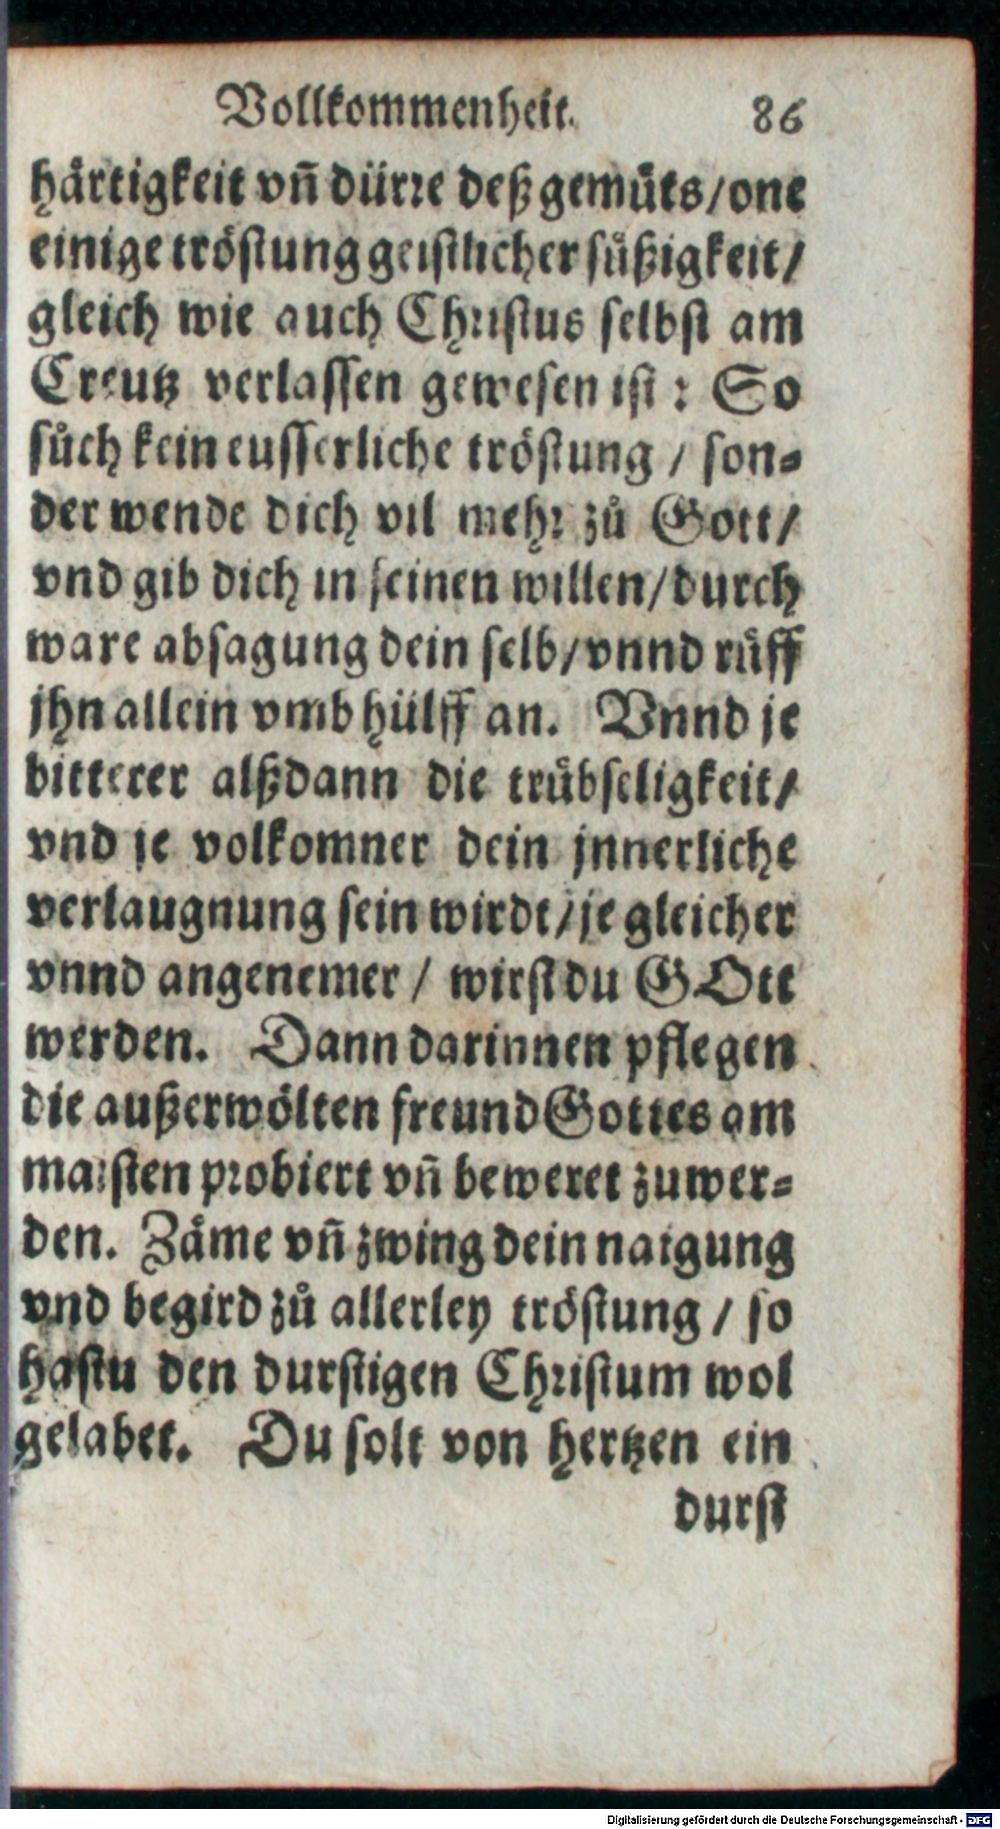 Vollkommenheit. 86
haͤrtigkeit vñ duͤrꝛe deß gemuͤts/ one
einige troͤſtung geiſtlicher ſuͤßigkeit/
gleich wie auch Chꝛiſtus ſelbſt am
Creutz verlaſſen gewesen iſt : So
ſuͦch kein euſſerliche troͤſtung / ſon⸗
der wende dich vil mehꝛ zuͦ Gott/
vnd gib dich in ſeinen willen/ durch
ware abſagung dein ſelb/ vnnd ruͤff
jhn allein vmb huͤlff an. Vnnd je
bitterer alßdann die truͤbſeligkeit/
vnd je volkomner dein jnnerliche
verlaugnung ſein wirdt/ je gleicher
vnnd angenemer / wirſt du GOtt
werden. Dann darinnen pflegen
die außerwoͤlten freund Gottes am
maiſten pꝛobiert vñ beweret zuwer⸗
den. Zaͤme vñ zwing dein naigung
vnd begird zuͦ allerley troͤſtung / ſo
haſtu den durſtigen Chꝛiſtum wol
gelabet. Du ſolt von hertzen ein
durſt
Digitalisierung gefördert durch die Deutsche Forschungsgemeinschaft - DFG